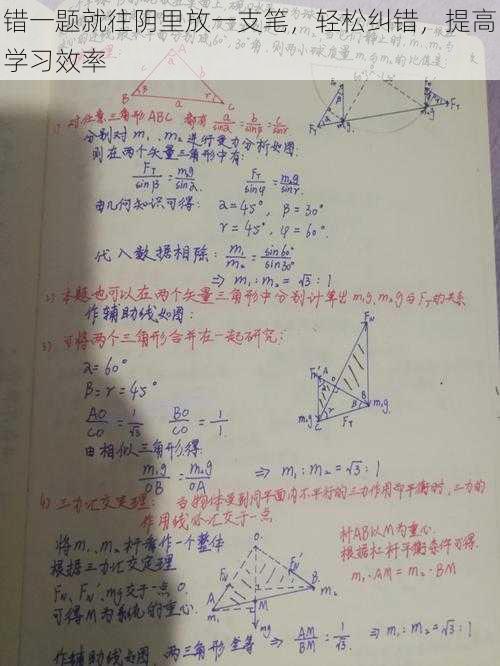 错一题就往阴里放一支笔，轻松纠错，提高
学习效率
60°，30°角，则两小球质量m₁与m₂的比值是：
A
B a C
1) 对任意三角形ABC 都有 a/sinα = b/sinβ = c/sinγ
分别对m₁、m₂进行受力分析如图：
则在两个矢量三角形中有：
F_T/sinβ = m₁g/sinα F_T/sinφ = m₂g/sinγ
由几何知识可得： α=45°，β=30°
γ=45°，φ=60°.
代入数据相除： m₁/m₂ = sin60°/sin30°
⇒ m₁:m₂ = √3:1
2) 本题也可以在两个矢量三角形中分别计算出m₁g, m₂g与F_T的关系
作辅助线如图：
3) 可将两个三角形合并在一起研究：
α=60°
β=γ=45°
AO/CO = 1/√3 BO/CO = 1/1
由相似三角形得：
m₁g/OB = m₂g/OA ⇒ m₁:m₂=√3:1
4) 三力汇交定理： 当物体受到同平面内不平行的三力作用而平衡时，三力的
作用线必汇交于一点
将m₁、m₂杆看作一个整体
根据三力汇交定理
F_N、F_N'、mg交于一点O.
可得M为系统的重心.
杆AB以M为重心.
根据杠杆平衡条件可得.
m₁·AM = m₂·BM
作辅助线如图，两三角形全等 ⇒ AM/BM = 1/√3 ⇒ m₁:m₂=√3:1